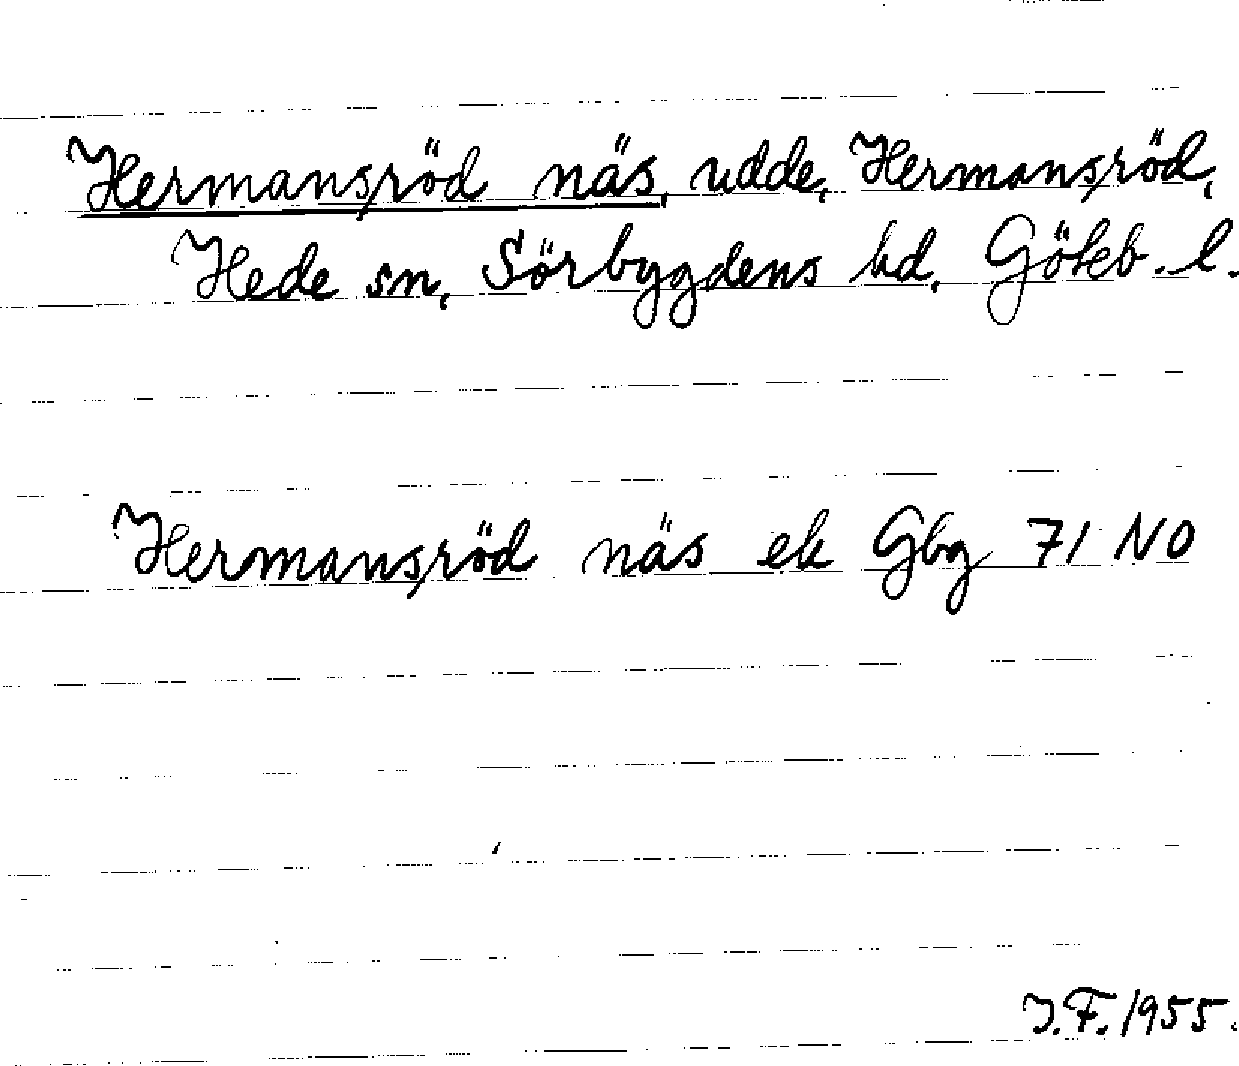 Hermansröd näs, udde, Hermansröd,
Hede sn, Sörbygdens hd, Göteb. l.
Hermansröd näs ek Gbg 71 NO
J.F. 1955.